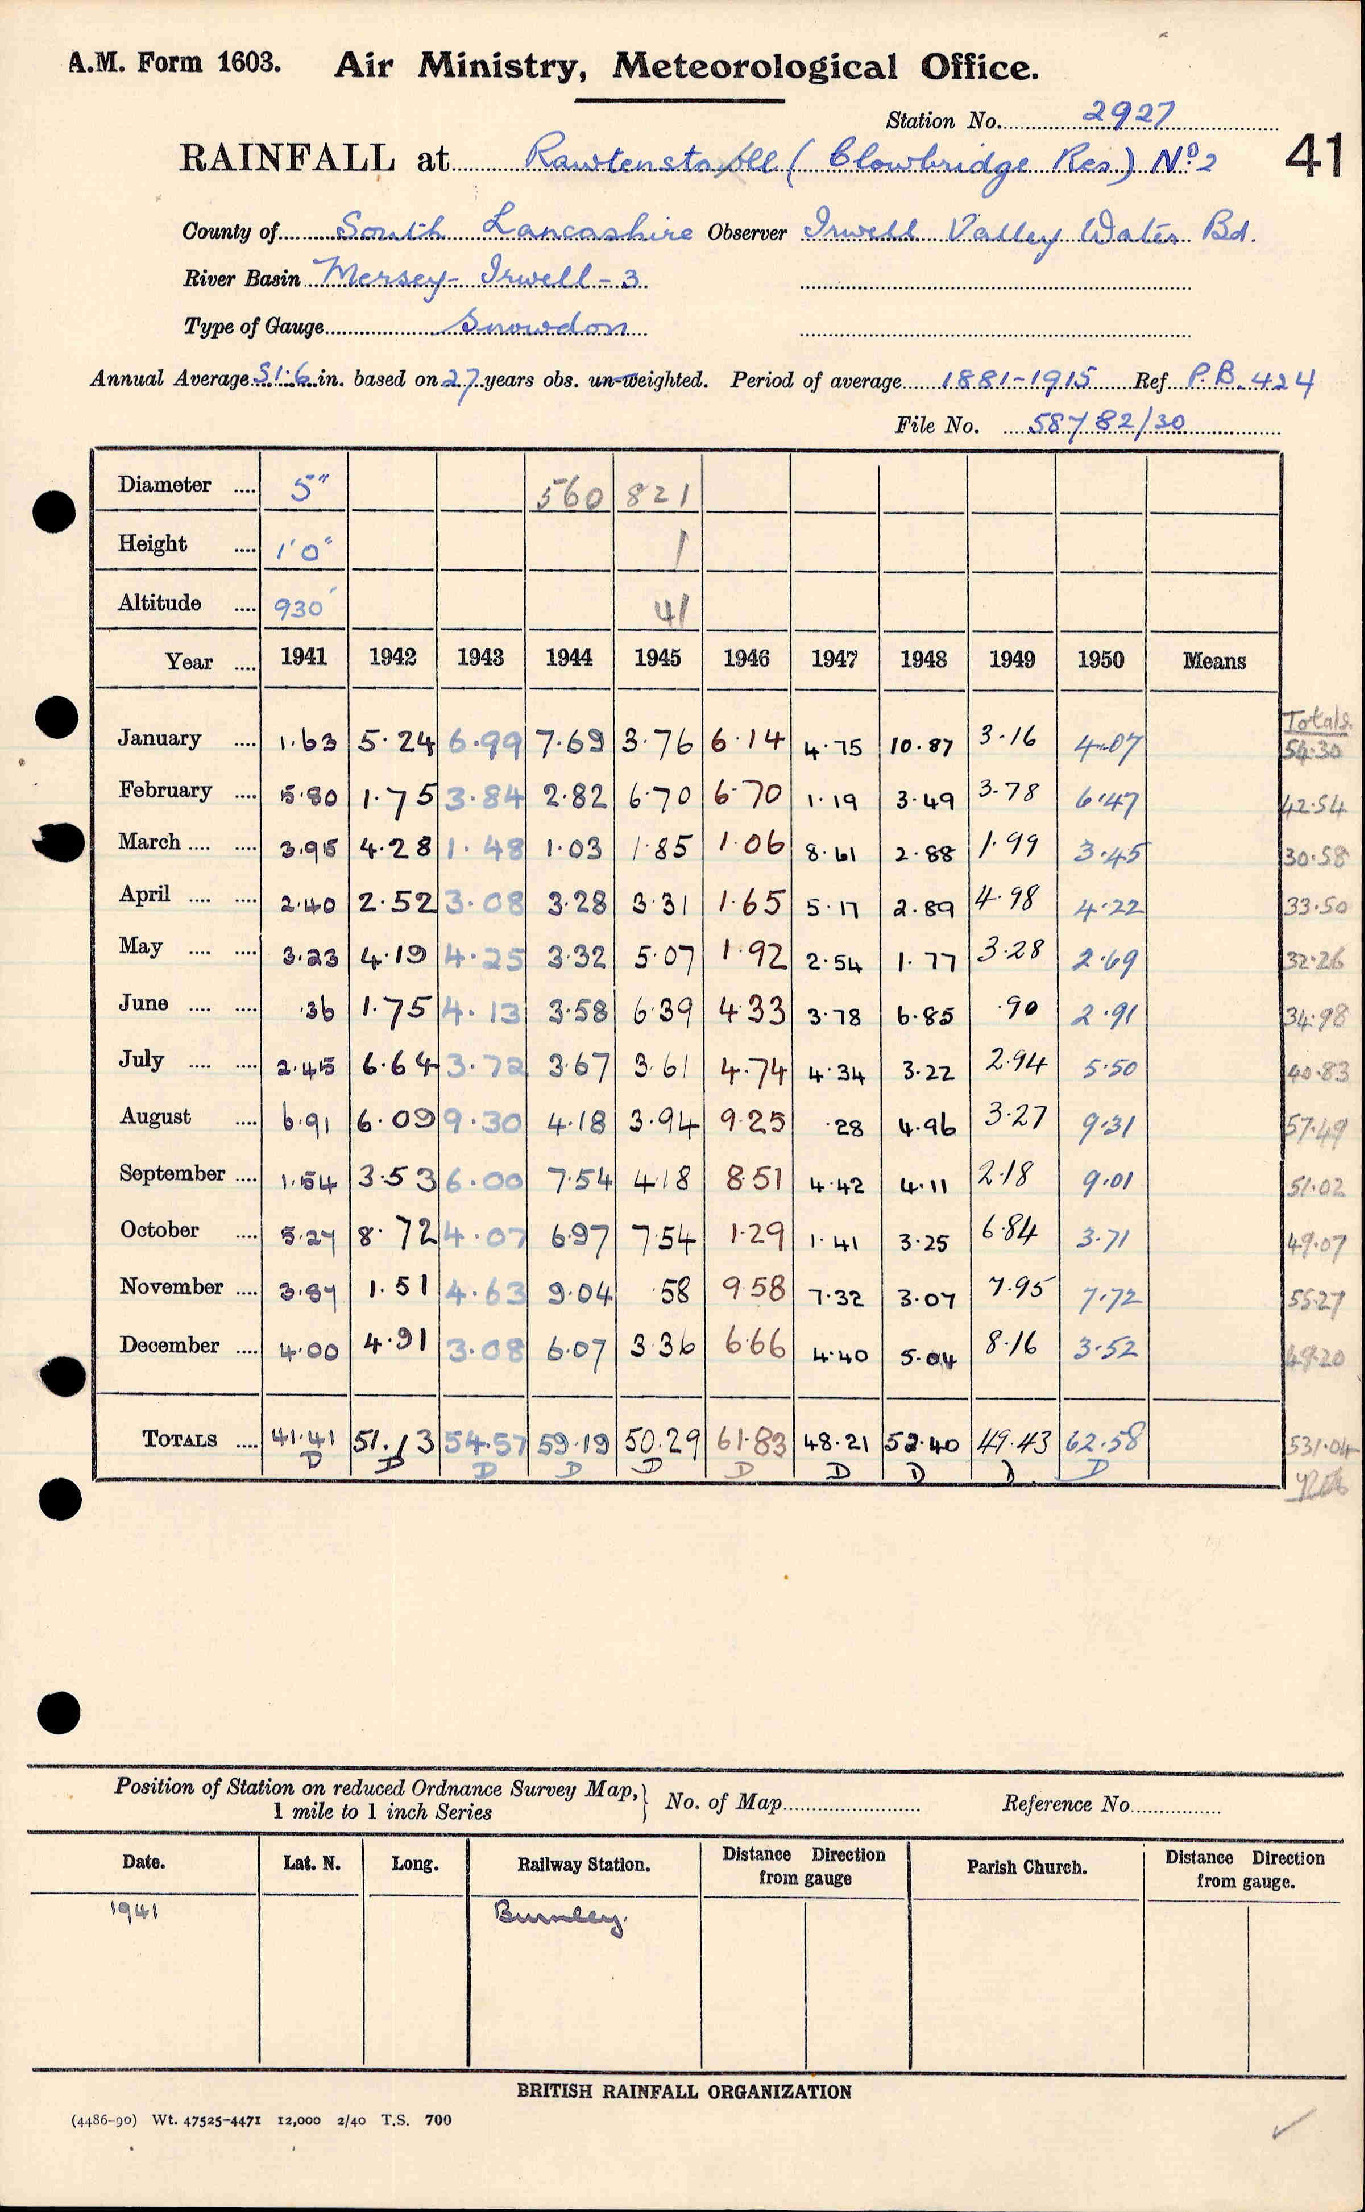 A.M. Form 1603. Air Ministry, Meteorological Office.
Station No. 2927
RAINFALL at Rawtenstall (Clowbridge Res.) No. 2 41
County of South Lancashire Observer Irwell Valley Water Bd.
River Basin Mersey - Irwell - 3
Type of Gauge Snowdon
Annual Average 51.6 in. based on 27 years obs. un-weighted. Period of average 1881-1915 Ref P.B. 424
File No. 58782/30
Diameter .... 5" 560 821
Height .... 1'0" 1
Altitude .... 930' 41
Year .... 1941 1942 1943 1944 1945 1946 1947 1948 1949 1950 Means
Totals
January .... 1.63 5.24 6.99 7.69 3.76 6.14 4.75 10.87 3.16 4.07 54.30
February .... 5.80 1.75 3.84 2.82 6.70 6.70 1.19 3.49 3.78 6.47 42.54
March .... .... 3.95 4.28 1.48 1.03 1.85 1.06 8.61 2.88 1.99 3.45 30.58
April .... .... 2.40 2.52 3.08 3.28 3.31 1.65 5.17 2.89 4.98 4.22 33.50
May .... .... 3.23 4.19 4.25 3.32 5.07 1.92 2.54 1.77 3.28 2.69 32.26
June .... .... .36 1.75 4.13 3.58 6.39 4.33 3.78 6.85 .90 2.91 34.98
July .... .... 2.45 6.64 3.72 3.67 3.61 4.74 4.34 3.22 2.94 5.50 40.83
August .... 6.91 6.09 9.30 4.18 3.94 9.25 .28 4.96 3.27 9.31 57.49
September .... 1.54 3.53 6.00 7.54 4.18 8.51 4.42 4.11 2.18 9.01 51.02
October .... 5.27 8.72 4.07 6.97 7.54 1.29 1.41 3.25 6.84 3.71 49.07
November .... 3.87 1.51 4.63 9.04 .58 9.58 7.32 3.07 7.95 7.72 55.27
December .... 4.00 4.91 3.08 6.07 3.36 6.66 4.40 5.04 8.16 3.52 49.20
TOTALS .... 41.41 51.13 54.57 59.19 50.29 61.83 48.21 52.40 49.43 62.58 531.04
D D D D D D D D D D
Position of Station on reduced Ordnance Survey Map, } No. of Map Reference No.
1 mile to 1 inch Series
Date. Lat. N. Long. Railway Station. Distance Direction from gauge Parish Church. Distance Direction from gauge.
1941 Burnley.
BRITISH RAINFALL ORGANIZATION
(4486-90) Wt. 47525-4471 12,000 2/40 T.S. 700